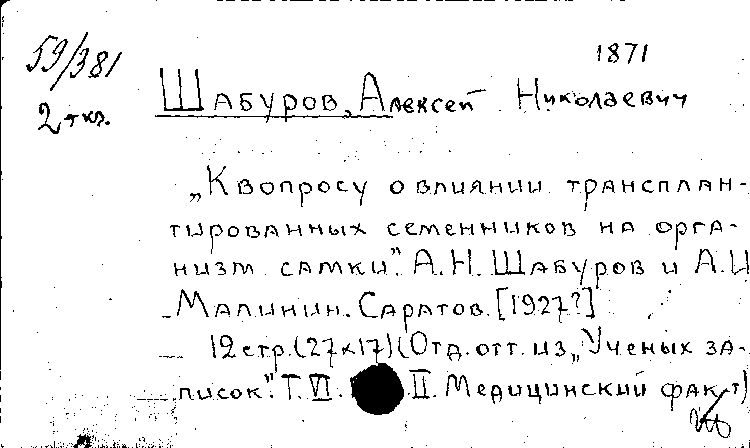 59/381
1871
Шабуров, Алексей Николаевич
2 экз.
„К вопросу о влиянии трансплан-
тированных семенников на орга-
низм самки". А.Н. Шабуров и А.И
Малинин. Саратов. [1927?]
12 стр. (27×17) (Отд. отт. из „Ученых за-
писок". Т. VI. II. Медицинский фак-т)